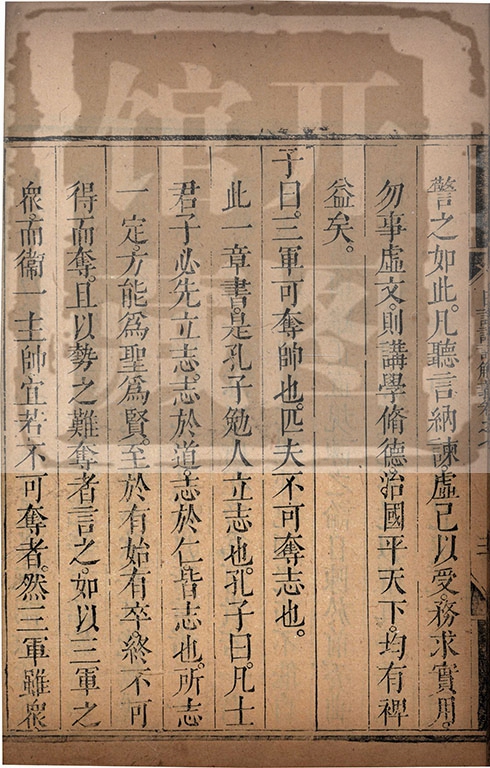 警之如此。凡聽言納諫。虛己以受。務求實用。
勿事虛文。則講學脩德。治國平天下。均有裨
益矣。
子曰。三軍可奪帥也。匹夫不可奪志也。
此一章書。是孔子勉人立志也。孔子曰。凡士
君子必先立志。志於道。志於仁。皆志也。所志
一定。方能爲聖爲賢。至於有始有卒。終不可
得而奪。且以勢之難奪者言之。如以三軍之
衆。而衞一主帥。宜若不可奪者。然三軍雖衆